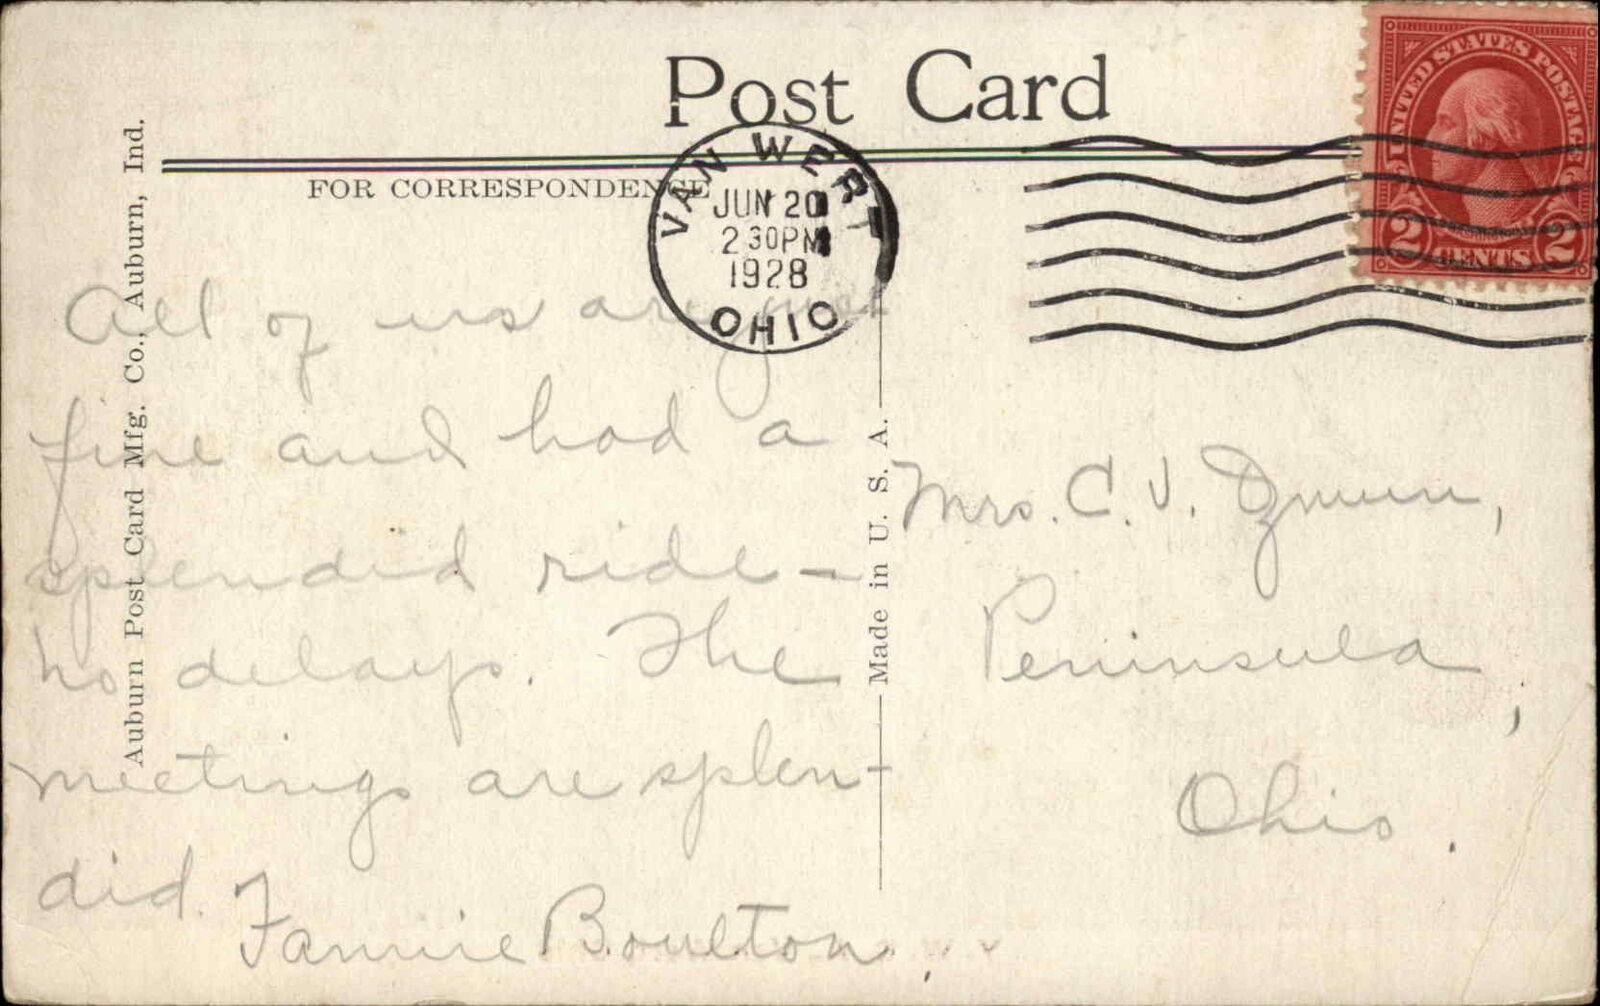 Post Card
FOR CORRESPONDENCE
VAN WERT
JUN 20
2 30PM
1928
OHIO
UNITED STATES POSTAGE
2 CENTS 2
Auburn Post Card Mfg. Co., Auburn, Ind.
Made in U. S. A.
All of us are just
fine and had a
splendid ride—
no delays. The
meetings are splen-
did. Fannie Boulton.
Mrs. C. J.
Peninsula,
Ohio.